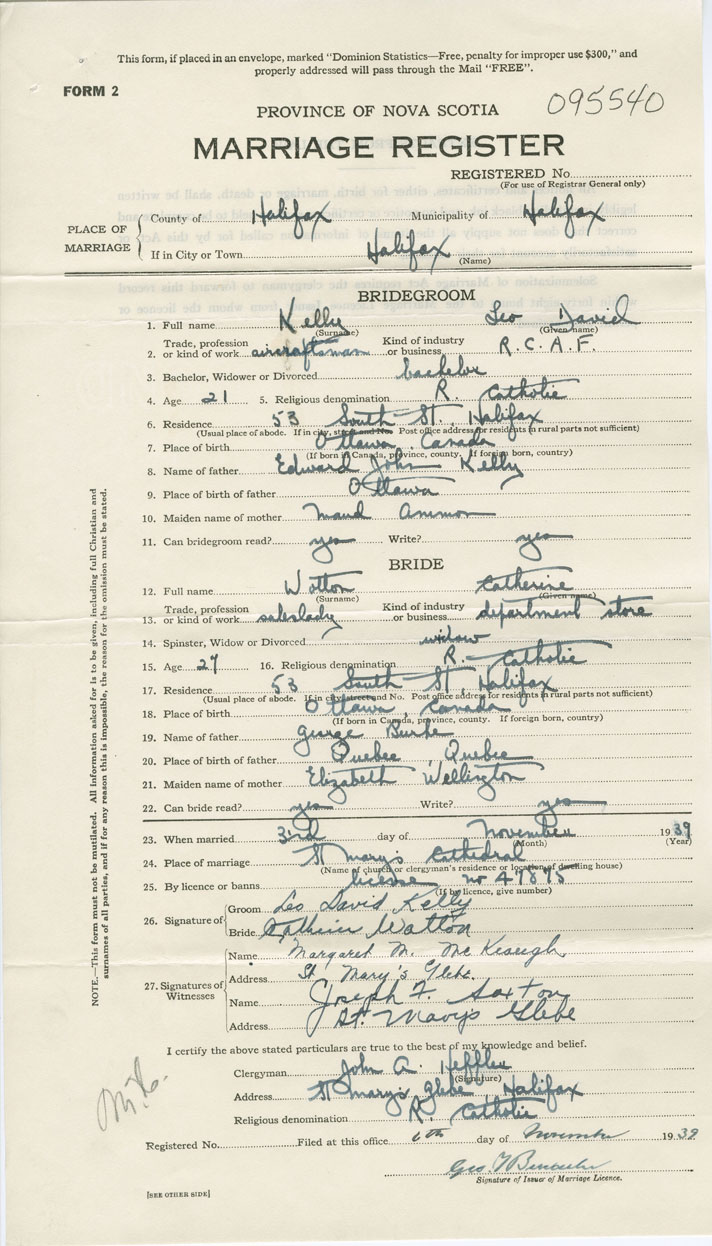 This form, if placed in an envelope, marked "Dominion Statistics—Free, penalty for improper use $300," and
properly addressed will pass through the Mail "FREE".
FORM 2
095540
PROVINCE OF NOVA SCOTIA
MARRIAGE REGISTER
REGISTERED No.
(For use of Registrar General only)
PLACE OF MARRIAGE
County of Halifax Municipality of Halifax
If in City or Town Halifax
(Name)
BRIDEGROOM
1. Full name Kelly Leo David
(Surname) (Given name)
2. Trade, profession or kind of work aircraftsman Kind of industry or business R.C.A.F.
3. Bachelor, Widower or Divorced bachelor
4. Age 21 5. Religious denomination R. Catholic
6. Residence 53 South St. Halifax
(Usual place of abode. If in city, street and No. Post office address for residents in rural parts not sufficient)
7. Place of birth Ottawa, Canada
(If born in Canada, province, county. If foreign born, country)
8. Name of father Edward John Kelly
9. Place of birth of father Ottawa
10. Maiden name of mother Maud Ammon
11. Can bridegroom read? yes Write? yes
BRIDE
12. Full name Watton Catherine
(Surname) (Given name)
13. Trade, profession or kind of work saleslady Kind of industry or business department store
14. Spinster, Widow or Divorced widow
15. Age 27 16. Religious denomination R. Catholic
17. Residence 53 South St Halifax
(Usual place of abode. If in city street and No. Post office address for residents in rural parts not sufficient)
18. Place of birth Ottawa, Canada
(If born in Canada, province, county. If foreign born, country)
19. Name of father George Burke
20. Place of birth of father Quebec, Quebec
21. Maiden name of mother Elizabeth Wellington
22. Can bride read? yes Write? yes
23. When married 3rd day of November 1939
(Month) (Year)
24. Place of marriage St Mary's Cathedral
(Name of church or clergyman's residence or location of dwelling house)
25. By licence or banns license no 47875
(If by licence, give number)
26. Signature of
Groom Leo David Kelly
Bride Catherine Watton
27. Signatures of Witnesses
Name Margaret M. McKeough
Address St Mary's Glebe.
Name Joseph F. Saxton
Address St. Mary's Glebe
I certify the above stated particulars are true to the best of my knowledge and belief.
Clergyman John A. Heffler
(Signature)
Address St Mary's Glebe Halifax
Religious denomination R. Catholic
Registered No. Filed at this office 6th day of November 1939
Geo.
Signature of Issuer of Marriage Licence.
[SEE OTHER SIDE]
NOTE.—This form must not be mutilated. All information asked for is to be given, including full Christian and
surnames of all parties, and if for any reason this is impossible, the reason for the omission must be stated.